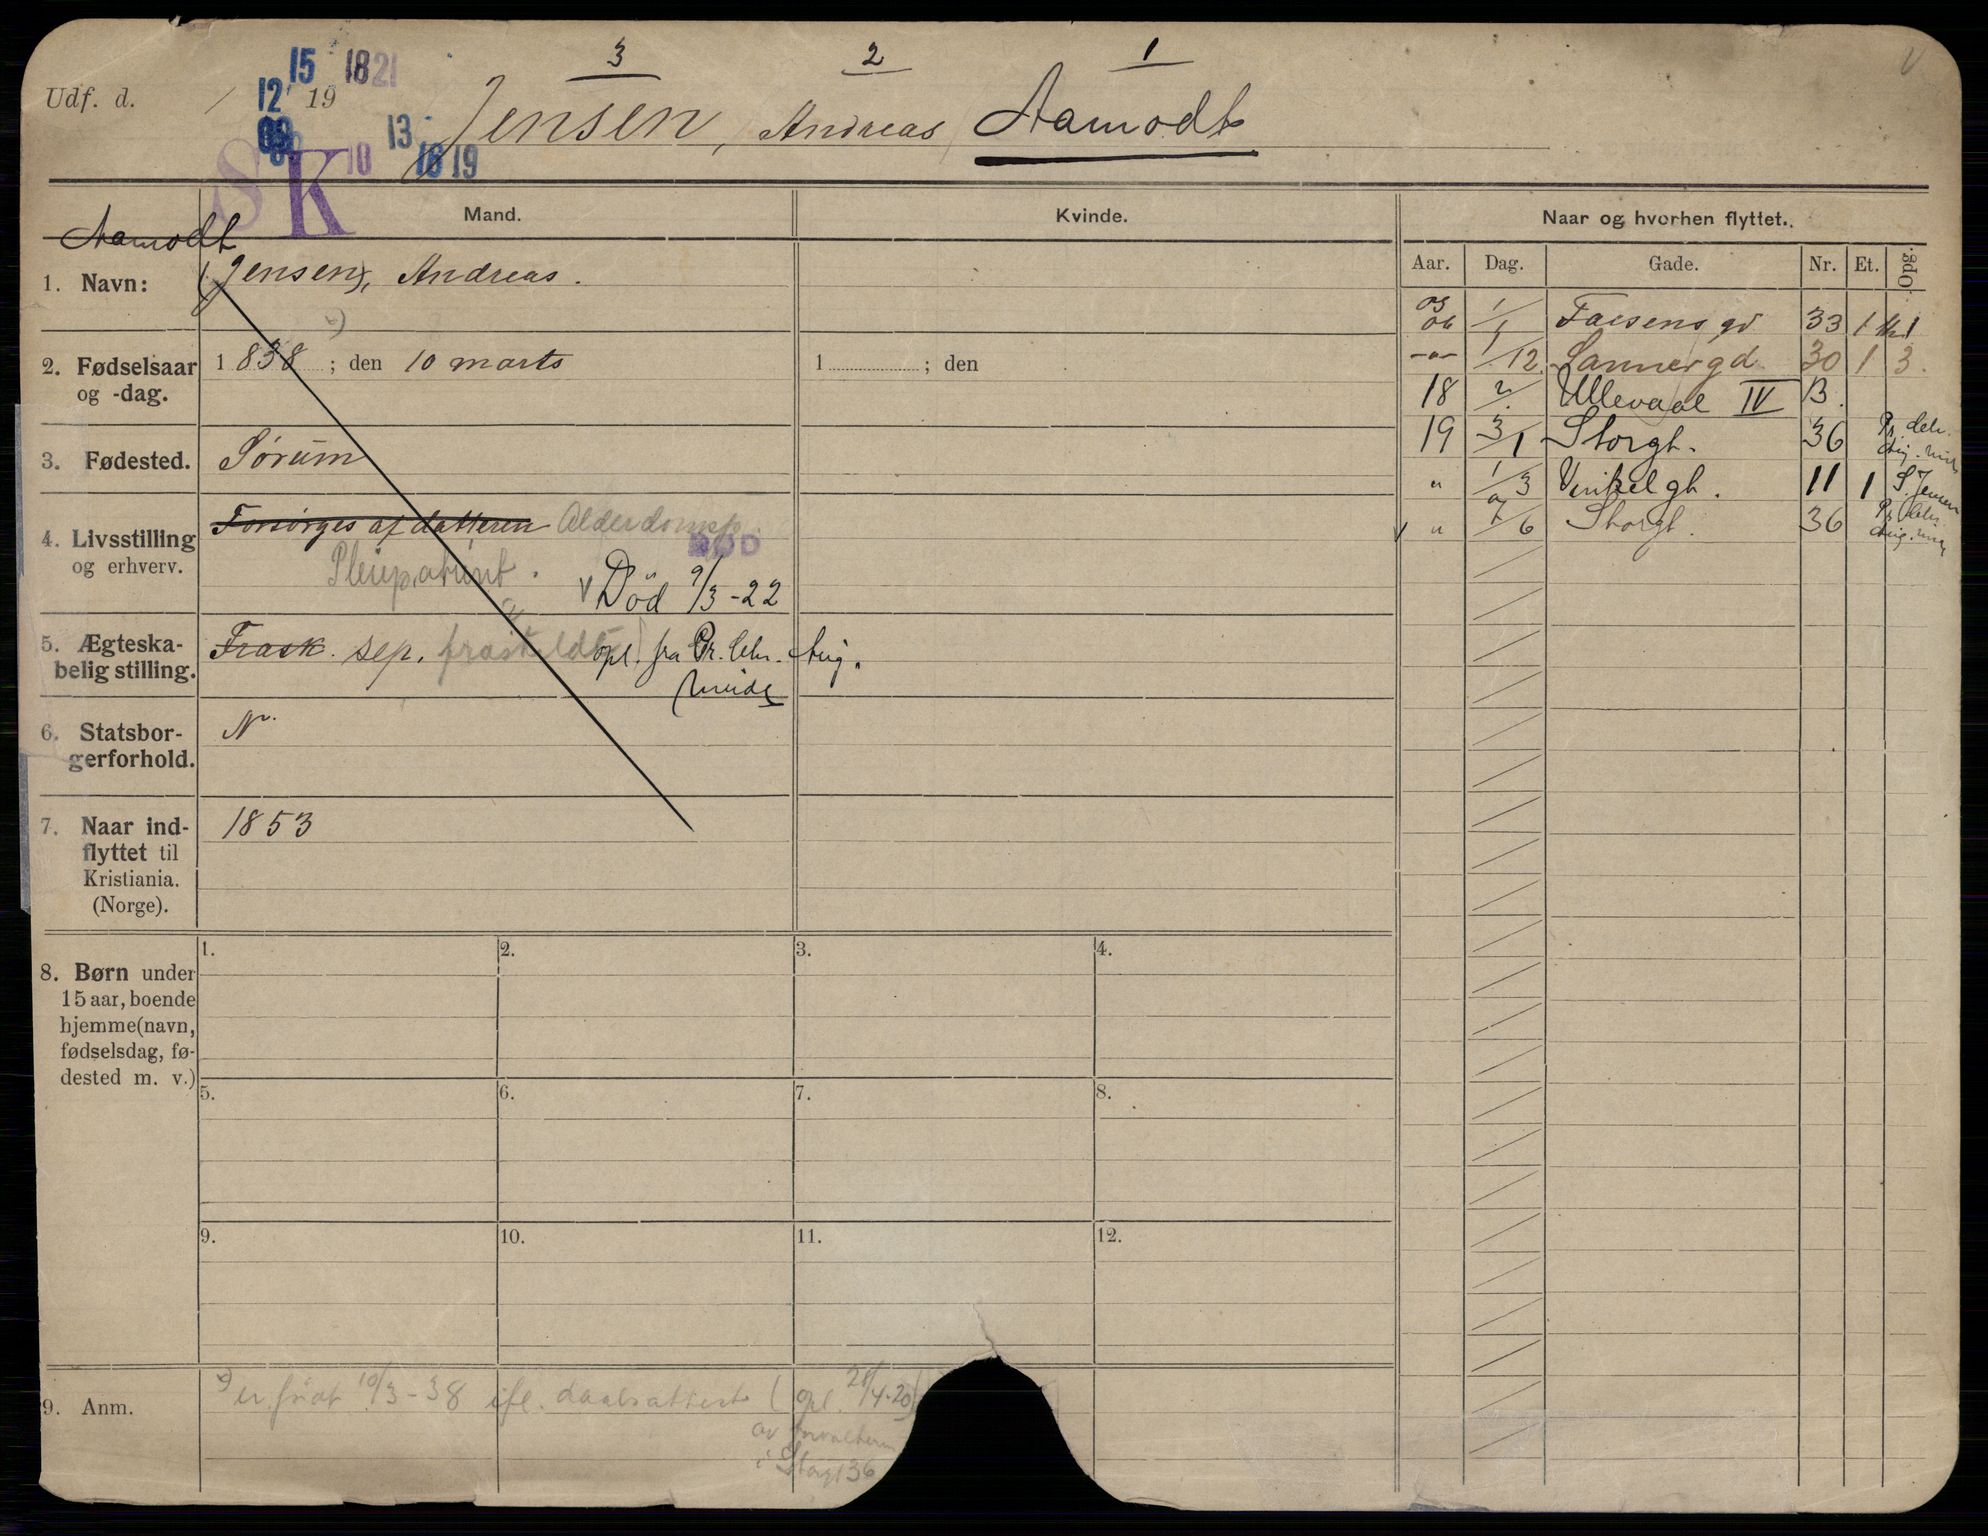 3 2 1
15 1821
Udf. d. 12 19
Jensen, Andreas Aamodt
13
SK 10 16 19
Mand. Kvinde. Naar og hvorhen flyttet.
Aamodt
1. Navn: (Jensen), Andreas.
Aar. Dag. Gade. Nr. Et. Opg.
05
06 1/1 33 1
2. Fødselsaar og -dag. 1838; den 10 marts 1 ; den
-"- 1/12 Sannergd 30 1 3.
18 2/ Ullevaal IV B.
3. Fødested. Sørum
19 3/1 Storgt. 36 Pr. Chr. Aug. minde
" 1/3 Vinkelgt. 11 1 S. Jensen
4. Livsstilling og erhverv. Forsørges af datteren Alderdomsp.
" 7/6 Storgt. 36 Pr. Chr. Aug. minde
DØD
Pleiepatient. Död 9/3-22
5. Ægteskabelig stilling. Frask. sep. fraskildt opl. fra Pr. Chr. Aug. minde
6. Statsborgerforhold. N.
7. Naar indflyttet til Kristiania. (Norge). 1853
8. Børn under 15 aar, boende hjemme (navn, fødselsdag, fødested m. v.)
1. 2. 3. 4.
5. 6. 7. 8.
9. 10. 11. 12.
9. Anm. er född 10/3-38 ifl. daabsattest (opl. 21/4-20)
av forvalteren
i Storgt 36